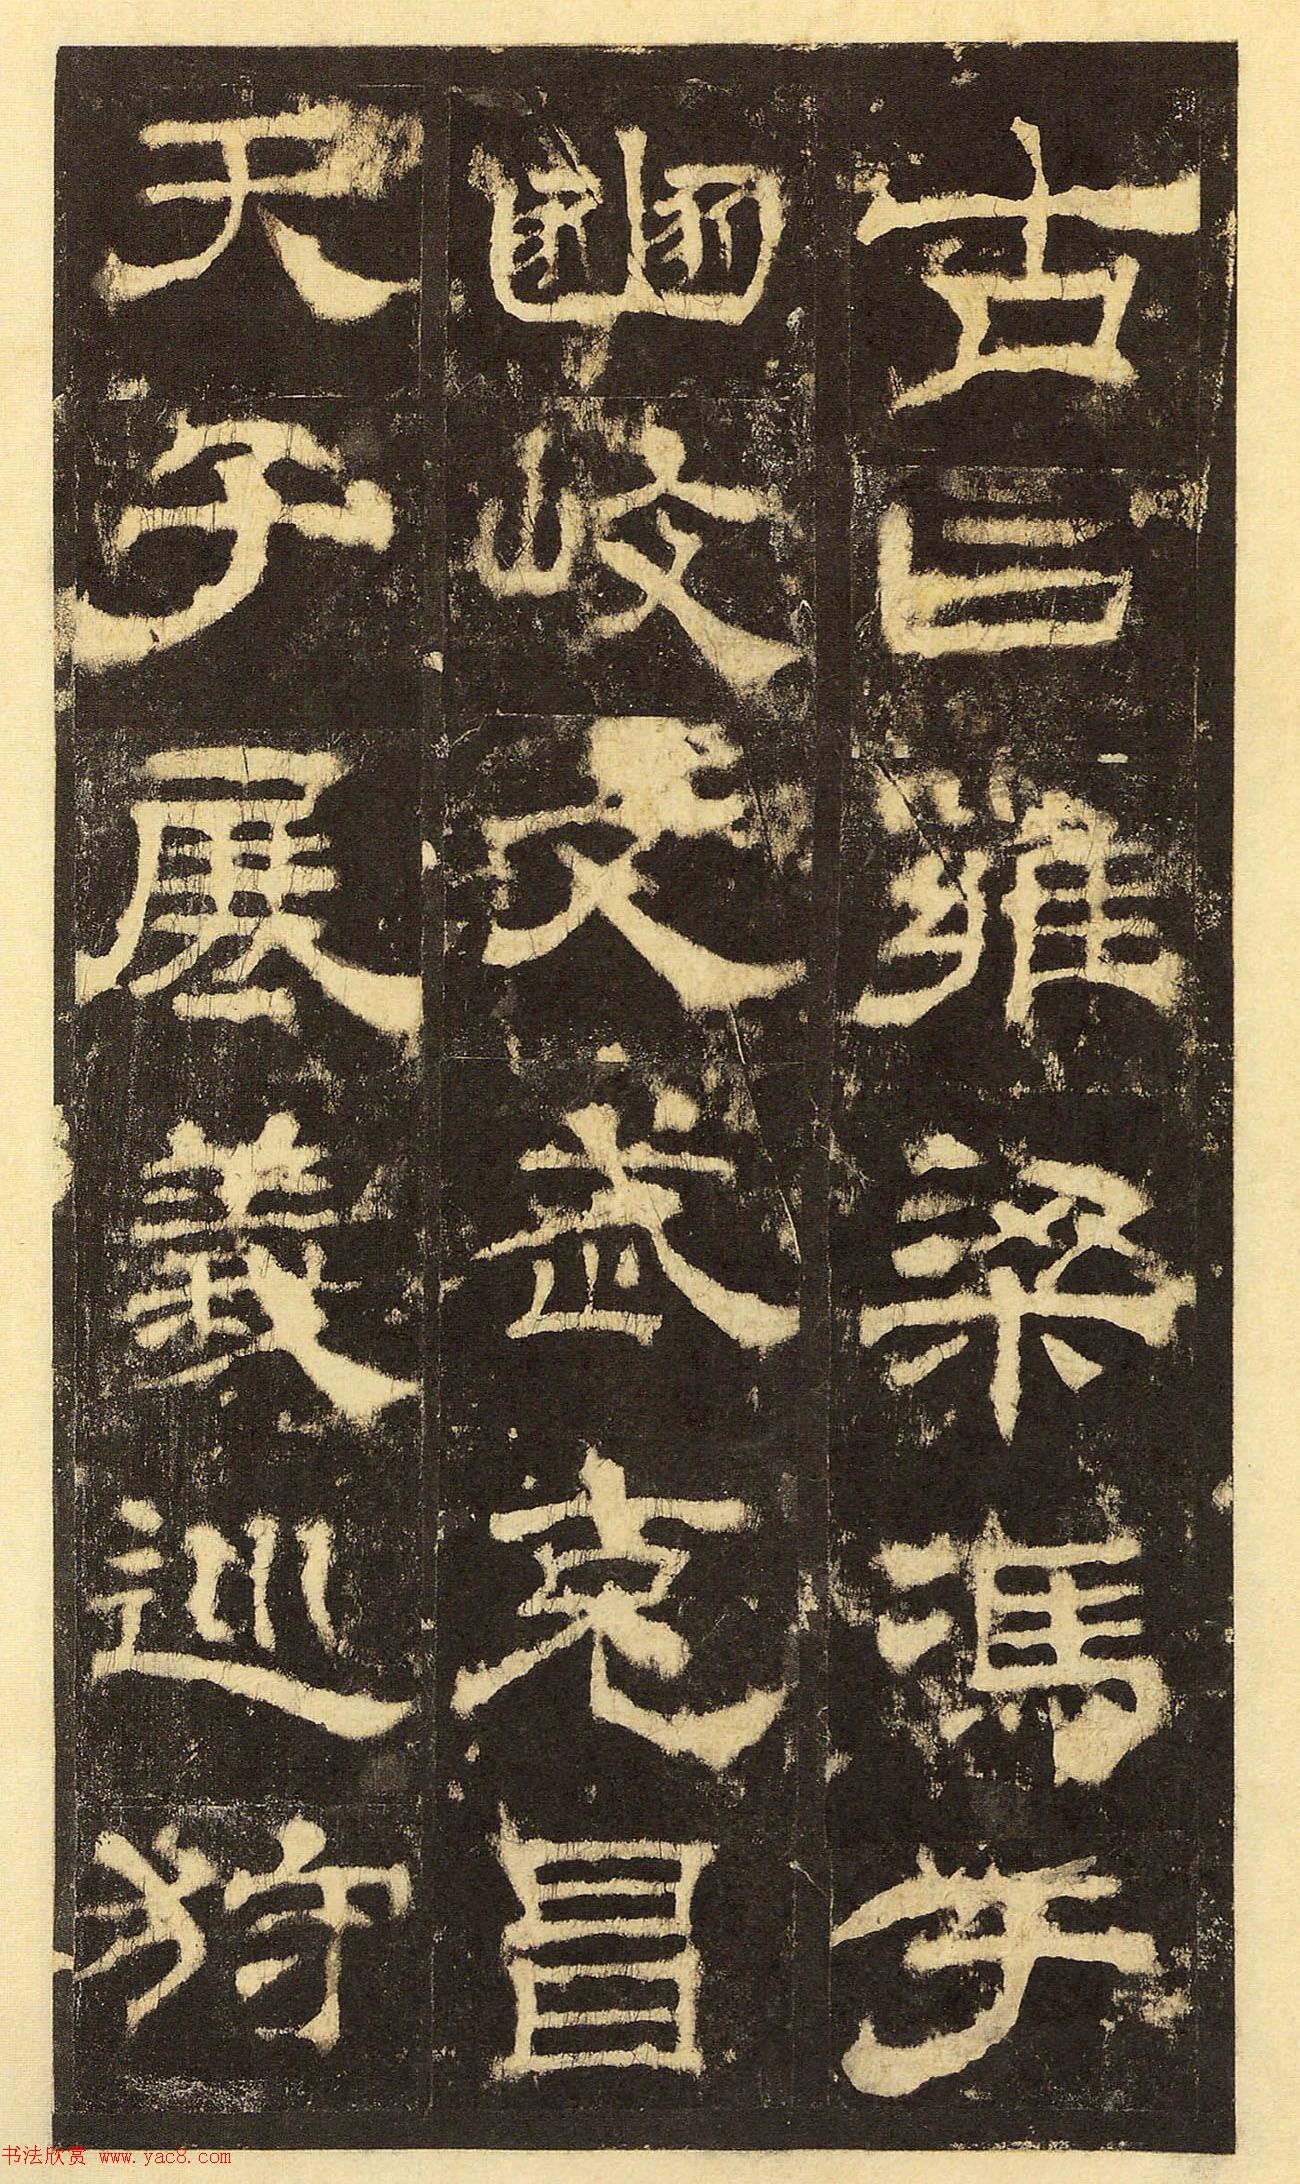 古曰雍梁馮于
豳岐文武克昌
天子展義巡狩
书法欣赏 www.yac8.com